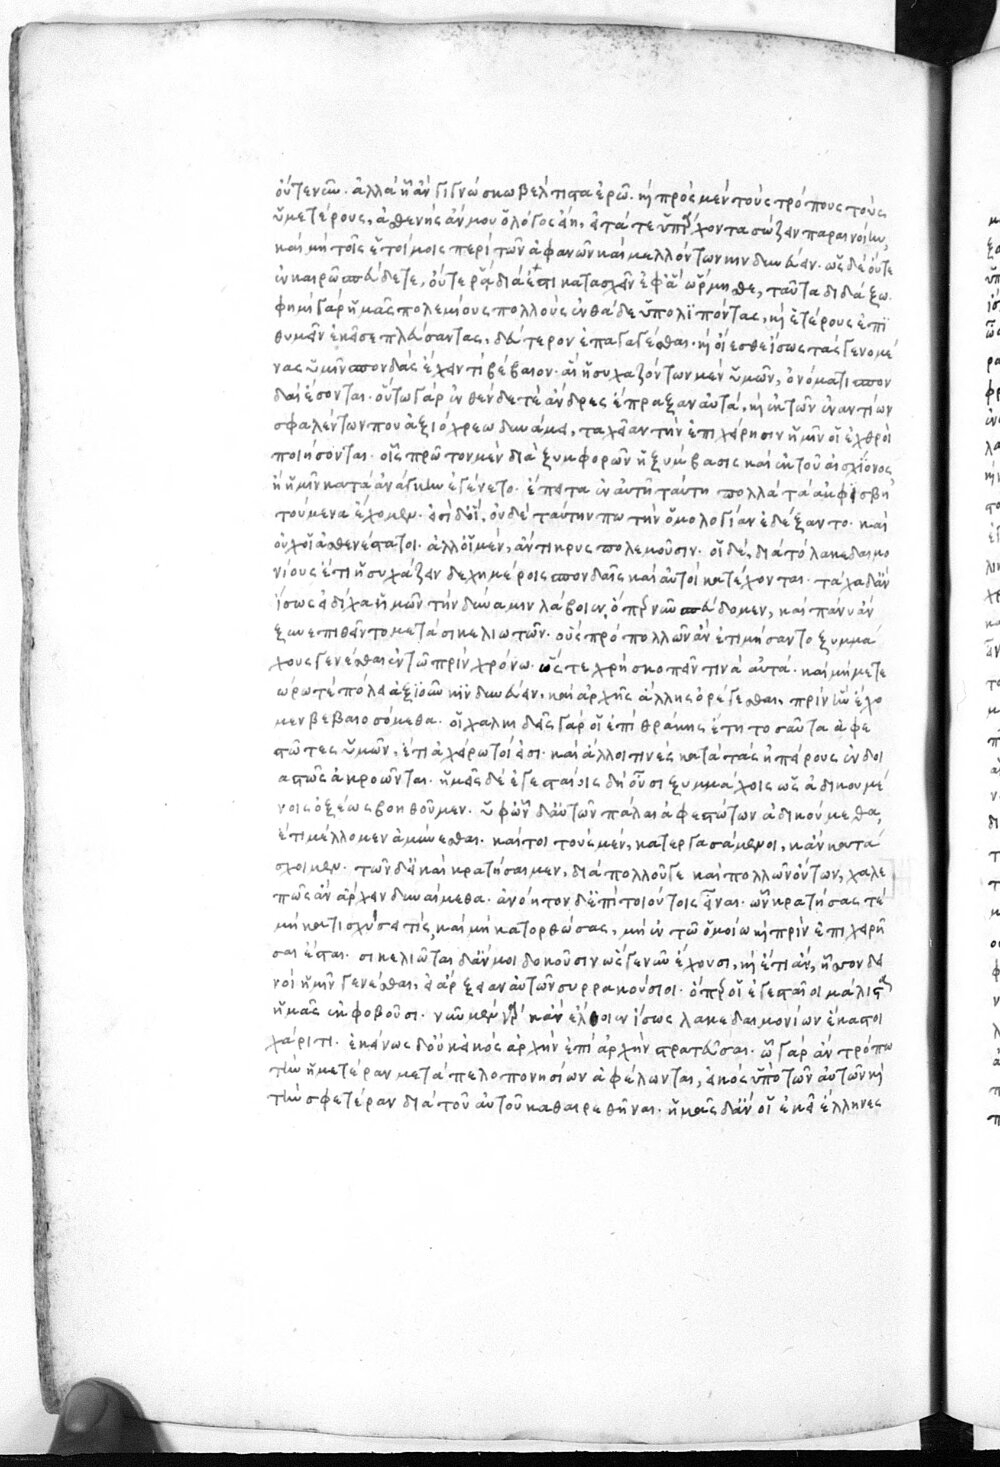 οὔτε νῦν. ἀλλὰ ᾗ ἂν γιγνώσκω βέλτιστα ἐρῶ. καὶ πρὸς μὲν τοὺς τρόπους τοὺς
ὑμετέρους, ἀσθενὴς ἄν μου ὁ λόγος εἴη, εἰ τά τε ὑπάρχοντα σώζειν παραινοίην,
καὶ μὴ τοῖς ἑτοίμοις περὶ τῶν ἀφανῶν καὶ μελλόντων κινδυνεύειν. ὡς δὲ οὔτε
ἐν καιρῷ σπεύδετε, οὔτε ῥᾴδιά ἐστι κατασχεῖν ἐφ' ἃ ὥρμησθε, ταῦτα διδάξω.
φημὶ γὰρ ἡμᾶς πολεμίους πολλοὺς ἐνθάδε ὑπολιπόντας, καὶ ἑτέρους ἐπι
θυμεῖν ἐκεῖσε πλεύσαντας, δεύτερον ἐπαγαγέσθαι. καὶ οἴεσθε ἴσως τὰς γενομέ
νας ὑμῖν σπονδὰς ἔχειν τι βέβαιον. αἳ ἡσυχαζόντων μὲν ὑμῶν, ὀνόματι σπον
δαὶ ἔσονται. οὕτω γὰρ ἐνθένδε τε ἄνδρες ἔπραξαν αὐτά, καὶ ἐκ τῶν ἐναντίων
σφαλέντων που ἀξιόχρεω δυνάμει, ταχεῖαν τὴν ἐπιχείρησιν ἡμῖν οἱ ἐχθροὶ
ποιήσονται. οἷς πρῶτον μὲν διὰ ξυμφορῶν ἡ ξύμβασις καὶ ἐκ τοῦ αἰσχίονος
ἢ ἡμῖν κατὰ ἀνάγκην ἐγένετο. ἔπειτα ἐν αὐτῇ ταύτῃ πολλὰ τὰ ἀμφισβη
τούμενα ἔχομεν. εἰσὶ δ' οἳ, οὐδὲ ταύτην πω τὴν ὁμολογίαν ἐδέξαντο. καὶ
οὐχ οἱ ἀσθενέστατοι. ἀλλ' οἱ μὲν, ἄντικρυς πολεμοῦσιν. οἱ δὲ, διὰ τὸ λακεδαιμο
νίους ἔτι ἡσυχάζειν δεχημέροις σπονδαῖς καὶ αὐτοὶ κατέχονται. τάχα δ' ἂν
ἴσως εἰ δίχα ἡμῶν τὴν δύναμιν λάβοιεν, ὅπερ νῦν σπεύδομεν, καὶ πάνυ ἂν
ξυνεπιθεῖντο μετὰ σικελιωτῶν. οὓς πρὸ πολλῶν ἂν ἐτιμήσαντο ξυμμά
χους γενέσθαι ἐν τῷ πρὶν χρόνω. ὥστε χρὴ σκοπεῖν τινὰ αὐτά. καὶ μὴ μετε
ώρω τε πόλει ἀξιοῦν κινδυνεύειν. καὶ ἀρχῆς ἄλλης ὀρέγεσθαι, πρὶν ἣν ἔχο
μεν βεβαιοσόμεθα. οἳ χαλκιδεῖς γὰρ οἱ ἐπὶ θράκης ἔτη τοσαῦτα ἀφε
στῶτες ὑμῶν, ἔτι ἀχείρωτοί εἰσι. καὶ ἄλλοι τινὲς κατὰ τὰς ἠπείρους ἐνδοι
αστῶς ἀκροῶνται. ἡμεῖς δὲ ἐγεσταίοις δὴ οὖσι ξυμμάχοις ὡς ἀδικουμέ
νοις ὀξέως βοηθοῦμεν. ὑφ' ὧν δ' αὐτῶν πάλαι ἀφεστώτων ἀδικούμεθα,
ἔτι μέλλομεν ἀμύνεσθαι. καίτοι τοὺς μὲν, κατεργασάμενοι, κἂν κατά
σχοιμεν. τῶν δ' εἰ καὶ κρατήσαιμεν, διὰ πολλοῦ γε καὶ πολλῶν ὄντων, χαλε
πῶς ἂν ἄρχειν δυναίμεθα. ἀνόητον δ' ἐπὶ τοιούτοις εἶναι. ὧν κρατήσας τέ
μὴ κατισχύσει τίς, καὶ μὴ κατορθώσας, μὴ ἐν τῷ ὁμοίω καὶ πρὶν ἐπιχειρῆ
σαι ἔσται. σικελιῶται δ' ἄν μοι δοκοῦσιν ὡς γε νῦν ἔχουσι, καὶ ἔτι ἂν, ἧσσον δει
νοὶ ἡμῖν γενέσθαι, εἰ ἄρξειαν αὐτῶν συρρακούσιοι. ὅπερ οἱ ἐγεσταῖοι μάλιστα
ἡμᾶς ἐκφοβοῦσι. νῦν μὲν γὰρ κἂν ἔλθοιεν ἴσως λακεδαιμονίων ἕκαστοι
χάριτι. ἐκείνως δ' οὐκ εἰκὸς ἀρχὴν ἐπὶ ἀρχὴν στρατεῦσαι. ᾧ γὰρ ἂν τρόπω
τὴν ἡμετέραν μετὰ πελοπονησίων ἀφέλωνται, εἰκὸς ὑπὸ τῶν αὐτῶν καὶ
τὴν σφετέραν διὰ τοῦ αὐτοῦ καθαιρεθῆναι. ἡμᾶς δ' ἂν οἱ ἐκεῖ ἕλληνες